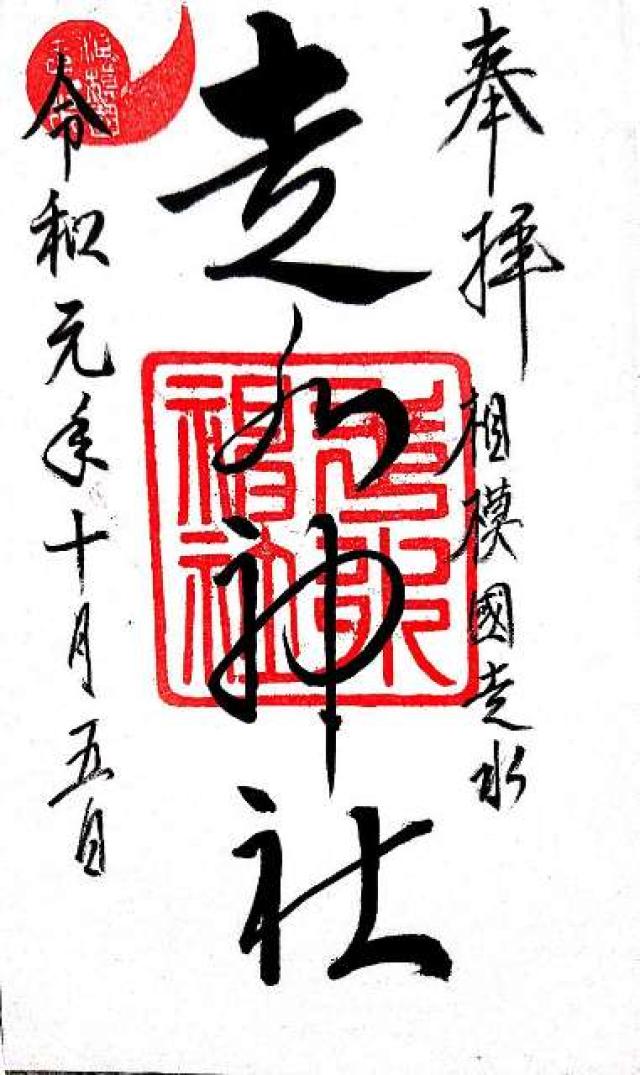 奉拝
相模國走水
走水神社
走水神社
令和元年十月五日